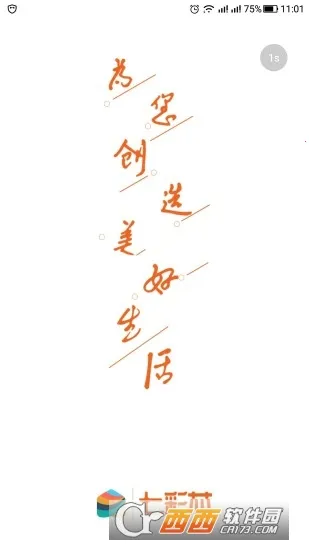 75% 11:01
1s
為
您
创
造
美
好
生
活
七彩
西西软件园
CR173.COM